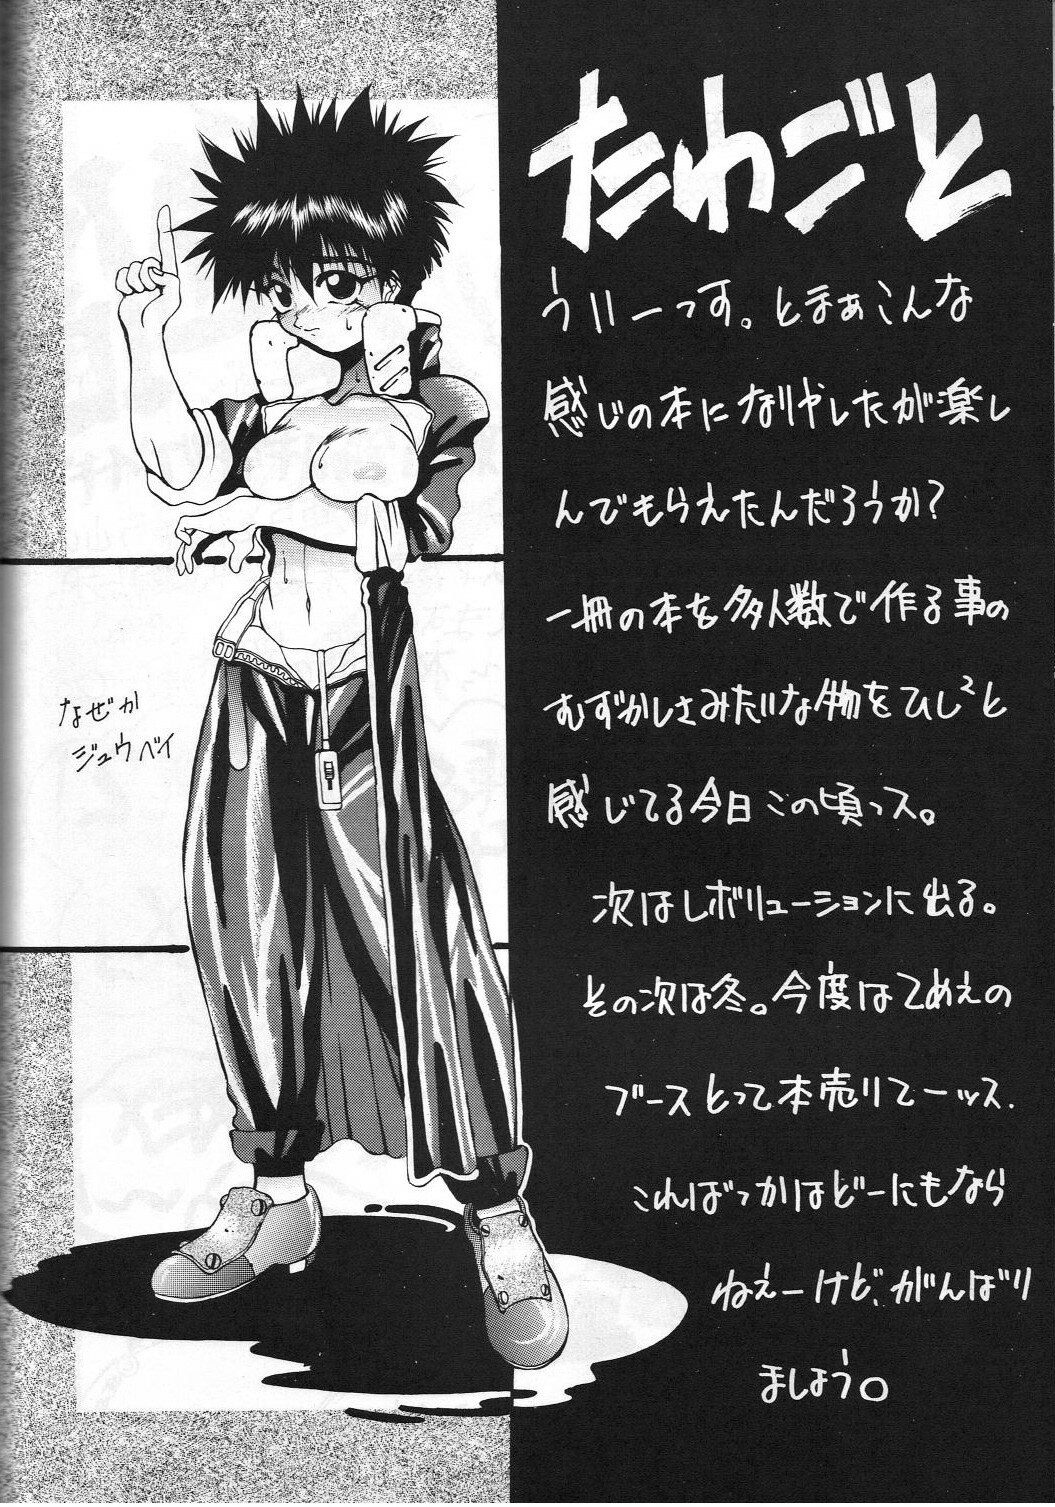 たわごと
うぃーっす。とまぁこんな
感じの本になりやしたが楽し
んでもらえたんだろうか?
一冊の本を多人数で作る事の
むずかしさみたいな物をひし²と
感じてる今日この頃っス。
次はレボリューションに出る。
その次は冬。今度はてめえの
ブースとって本売りてーッス.
こればっかはどーにもなら
ねえーけど、がんばり
ましょう。
なぜか
ジュウベイ